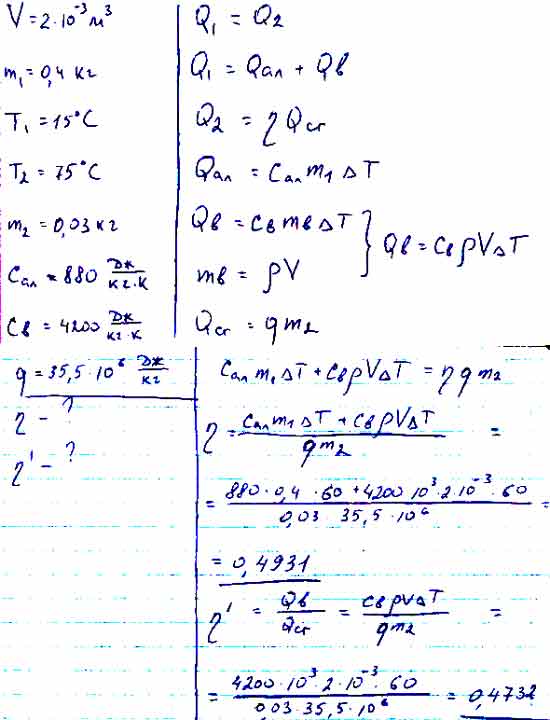 V = 2·10⁻³ м³
m₁ = 0,4 кг
T₁ = 15°C
T₂ = 75°C
m₂ = 0,03 кг
Cал = 880 Дж/кг·К
Cв = 4200 Дж/кг·К
q = 35,5·10⁶ Дж/кг
η - ?
η' - ?
Q₁ = Q₂
Q₁ = Qал + Qв
Q₂ = η Qсг
Qал = Cал m₁ ΔT
Qв = Cв mв ΔT } Qв = Cв ρVΔT
mв = ρV
Qсг = q m₂
Cал m₁ ΔT + Cв ρVΔT = η q m₂
η = (Cал m₁ ΔT + Cв ρVΔT)/(q m₂) =
= (880·0,4·60 + 4200 10³·2·10⁻³·60)/(0,03·35,5·10⁶) =
= 0,4931
η' = Qв/Qсг = Cв ρVΔT/(q m₂) =
= (4200·10³·2·10⁻³·60)/(0,03·35,5·10⁶) = 0,4732